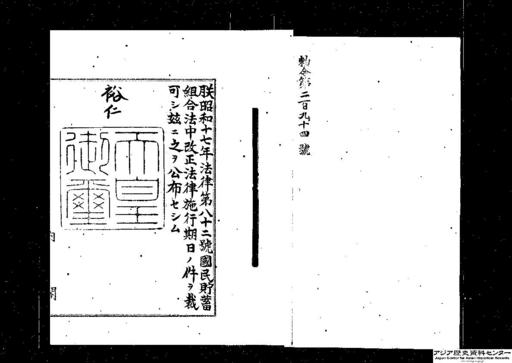 勅令第二百九十四號
朕昭和十七年法律第八十二號國民貯蓄
組合法中改正法律施行期日ノ件ヲ裁
可シ茲ニ之ヲ公布セシム
裕仁
天皇
御璽
内閣
アジア歴史資料センター
Japan Center for Asian Historical Records